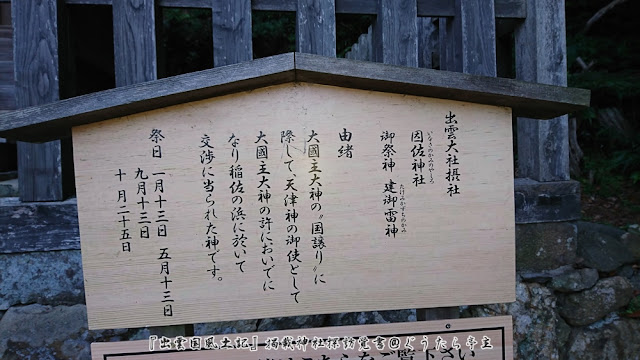 出雲大社摂社
因佐神社
いなさのかみのやしろ
御祭神 建御雷神
たけみかずちのかみ
由緒
大國主大神の〝国譲り〟に
際して、天津神の御使として
大國主大神の許においでに
なり稲佐の浜に於いて
交渉に当られた神です。
祭日 一月十三日 五月十三日
九月十三日
十月二十五日
をご覧下さい
『出雲国風土記』掲載神社探訪覚書@どうたら亭主